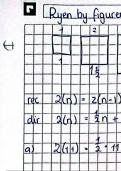 Ryen by figurer
1 2
1 1½
rec 2(n) = 2(n-1)
dir 2(n) = ½n +
a) 2(11) = ½ · 11